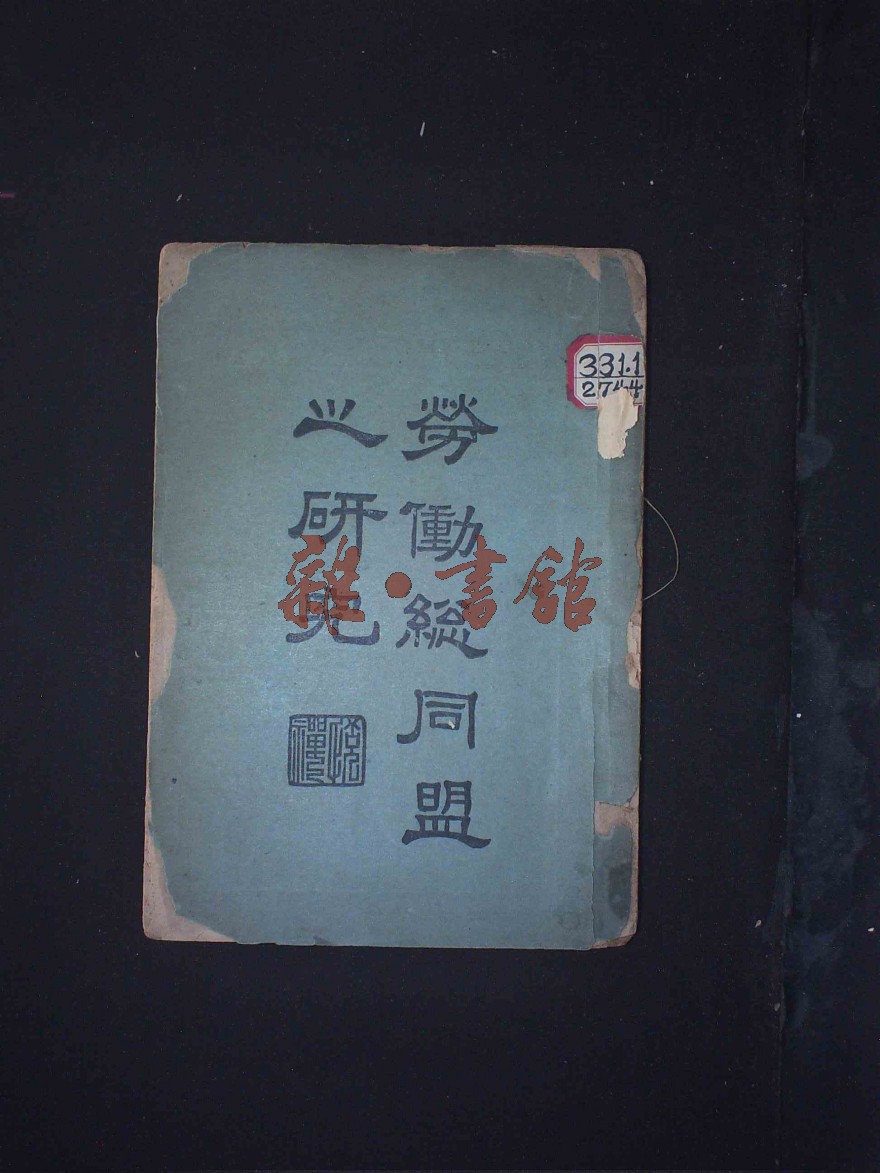 勞働総同盟
之研究
331.1
2744
雜·書館